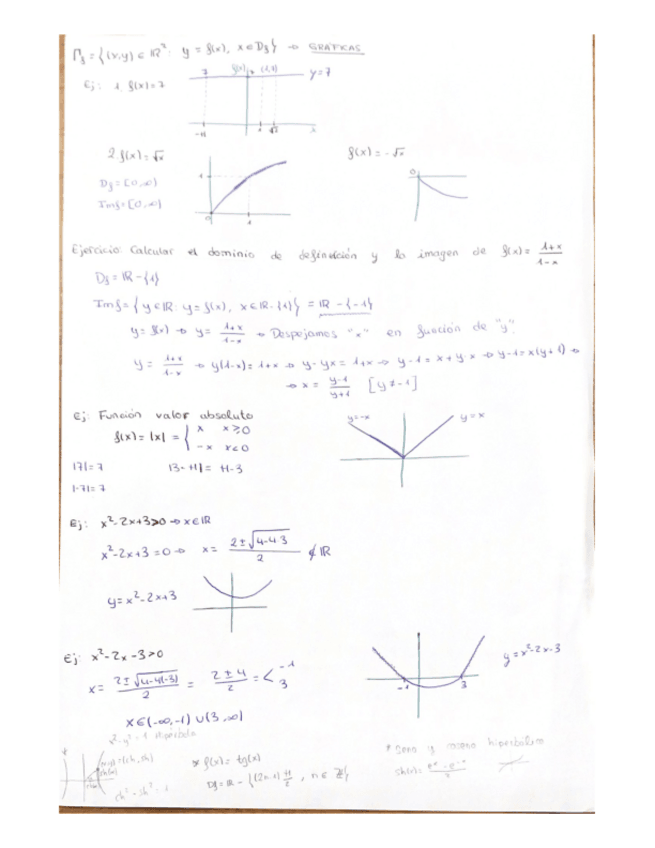 Γf = {(x,y) ∈ ℝ²: y = f(x), x ∈ Df} → GRÁFICAS
Ej: 1. f(x)=7
7 f(x) 7 (1,7) y=7
-π 1 √2 x
2. f(x)=√x
f(x) = -√x
Df = [0,∞)
Imf = [0,∞)
1
0 1
0
Ejercicio: Calcular el dominio de definición y la imagen de f(x) = (1+x)/(1-x)
Df = ℝ - {1}
Imf = {y ∈ ℝ: y = f(x), x ∈ ℝ-{1}} = ℝ - {-1}
y = f(x) → y = (1+x)/(1-x) → Despejamos "x" en función de "y".
y = (1+x)/(1-x) → y(1-x) = 1+x → y-yx = 1+x → y-1 = x+y·x → y-1 = x(y+1) →
→ x = (y-1)/(y+1) [y≠-1]
Ej: Función valor absoluto
f(x) = |x| = { x x≥0
-x x<0
y=-x y=x
|7| = 7 |3-π| = π-3
|-7| = 7
Ej: x²-2x+3>0 → x∈ℝ
x²-2x+3 = 0 → x = (2±√(4-4·3))/2 ∉ ℝ
y = x²-2x+3
Ej: x²-2x-3>0
x = (2±√(4-4(-3)))/2 = (2±4)/2 = < -1
3
-1 3
y = x²-2x-3
x ∈ (-∞,-1) ∪ (3,∞)
x²-y²=1 Hipérbola
* f(x) = tg(x)
Df = ℝ - {(2n+1) π/2, n ∈ ℤ}
ch² - sh² = 1
* Seno y coseno hiperbólico
sh(x) = (eˣ - e⁻ˣ)/2